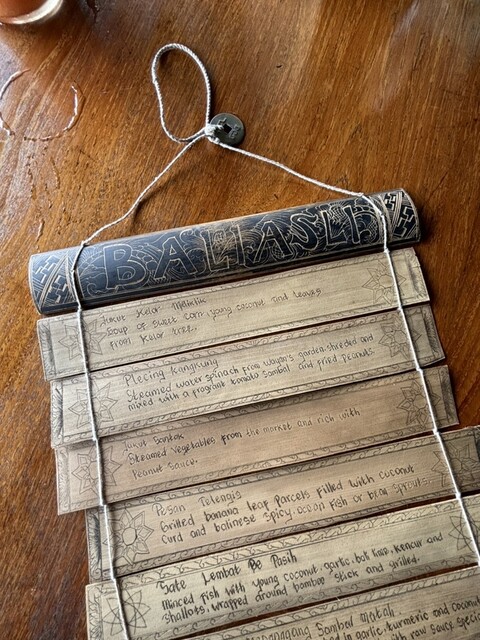 BALI ASLI
Jukut Kelor Maklik
Soup of sweet corn, young coconut and leaves
from Kelor tree.
Plecing Kangkung
Steamed water spinach from Wayan's garden, shreded and
mixed with a fragrant tomato sambal and fried peanuts.
Jukut Santok
Steamed vegetables from the market and rich with
Peanut sauce.
Pesan Telengis
Grilled banana leaf parcels filled with coconut
curd and balinese spicy, ocean fish or bean sprouts.
Sate Lembat Be Pasih
Minced fish with young coconut, garlic, bat lime, kencur and
shallots, wrapped around bamboo stick and grilled.
Sambal Matah
garlic, turmeric and coconut
raw sauce